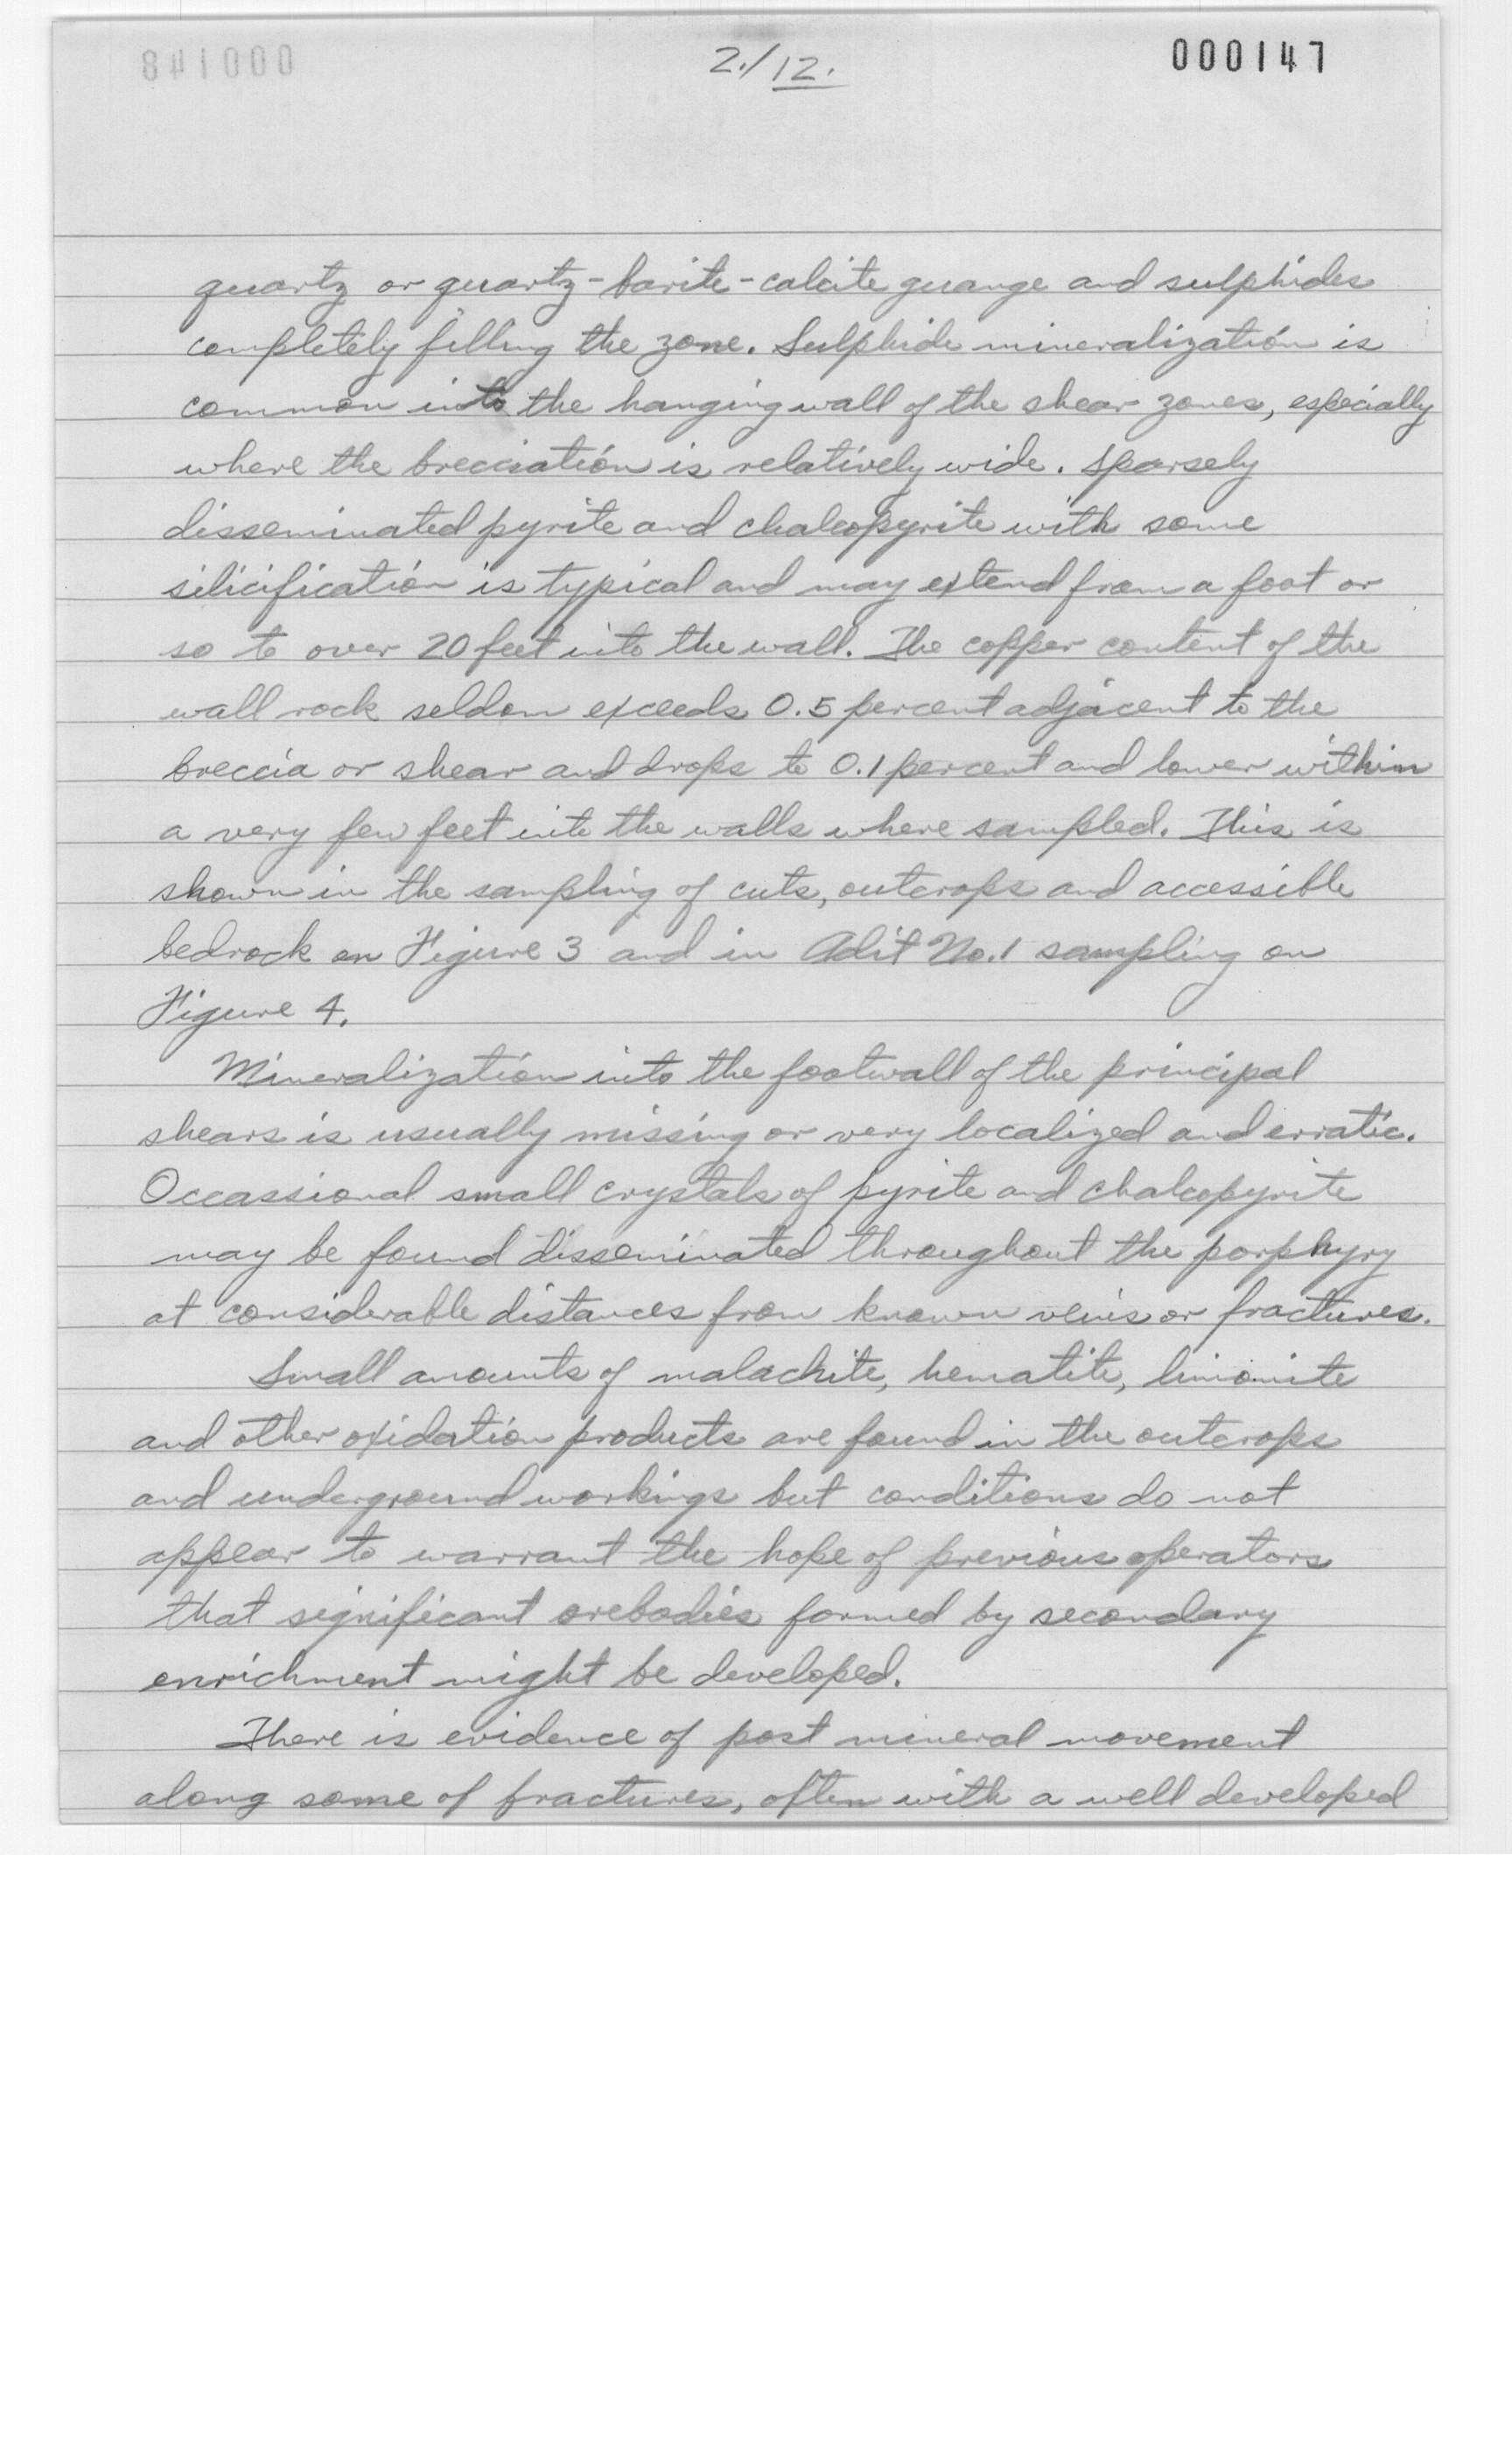 2./12.
000147
quartz or quartz-barite-calcite guange and sulphides
completely filling the zone. Sulphide mineralization is
common into the hanging wall of the shear zones, especially
where the brecciation is relatively wide. Sparsely
disseminated pyrite and chalcopyrite with some
silicification is typical and may extend from a foot or
so to over 20 feet into the wall. The copper content of the
wall rock seldom exceeds 0.5 percent adjacent to the
breccia or shear and drops to 0.1 percent and lower within
a very few feet into the walls where sampled. This is
shown in the sampling of cuts, outcrops and accessible
bedrock on Figure 3 and in Adit No. 1 sampling on
Figure 4.
Mineralization into the footwall of the principal
shears is usually missing or very localized and erratic.
Occassional small crystals of pyrite and chalcopyrite
may be found disseminated throughout the porphyry
at considerable distances from known veins or fractures.
Small amounts of malachite, hematite, limonite
and other oxidation products are found in the outcrops
and underground workings but conditions do not
appear to warrant the hope of previous operators
that significant orebodies formed by secondary
enrichment might be developed.
There is evidence of post mineral movement
along some of fractures, often with a well developed